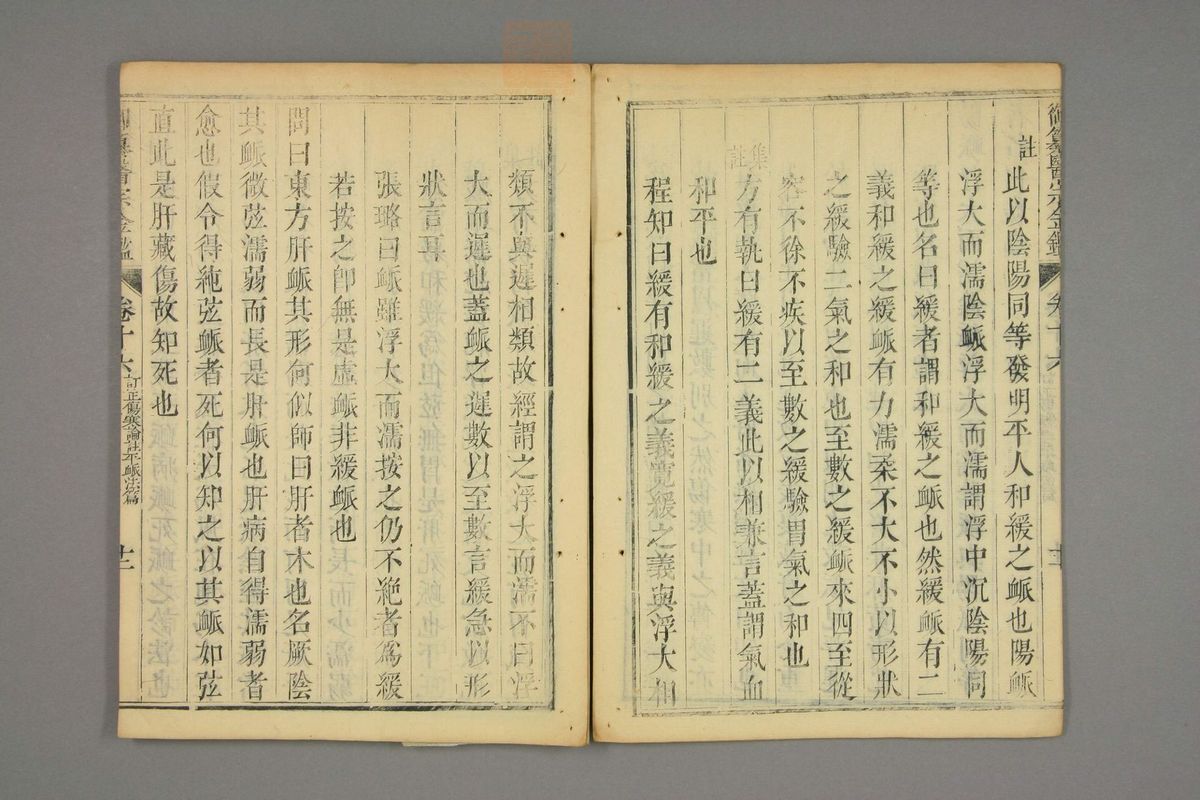 御纂醫宗金鑑 卷十六
註此以陰陽同等發明平人和緩之脈也陽脈
浮大而濡陰脈浮大而濡謂浮中沉陰陽同
等也名曰緩者謂和緩之脈也然緩脈有二
義和緩之緩脈有力濡柔不大不小以形狀
之緩驗二氣之和也至數之緩脈來四至從
容不徐不疾以至數之緩驗胃氣之和也
集註方有執曰緩有二義此以相兼言蓋謂氣血
和平也
程知曰緩有和緩之義寬緩之義與浮大相
類不與遲相類故經謂之浮大而濡不曰浮
大而遲也蓋脈之遲數以至數言緩急以形
狀言
張璐曰脈雖浮大而濡按之仍不絶者爲緩
若按之卽無是虛脈非緩脈也
問曰東方肝脈其形何似師曰肝者木也名厥陰
其脈微弦濡弱而長是肝脈也肝病自得濡弱者
愈也假令得純弦脈者死何以知之以其脈如弦
直此是肝藏傷故知死也
御纂醫宗金鑑 卷十六 訂正傷寒論註平脈法篇 十二